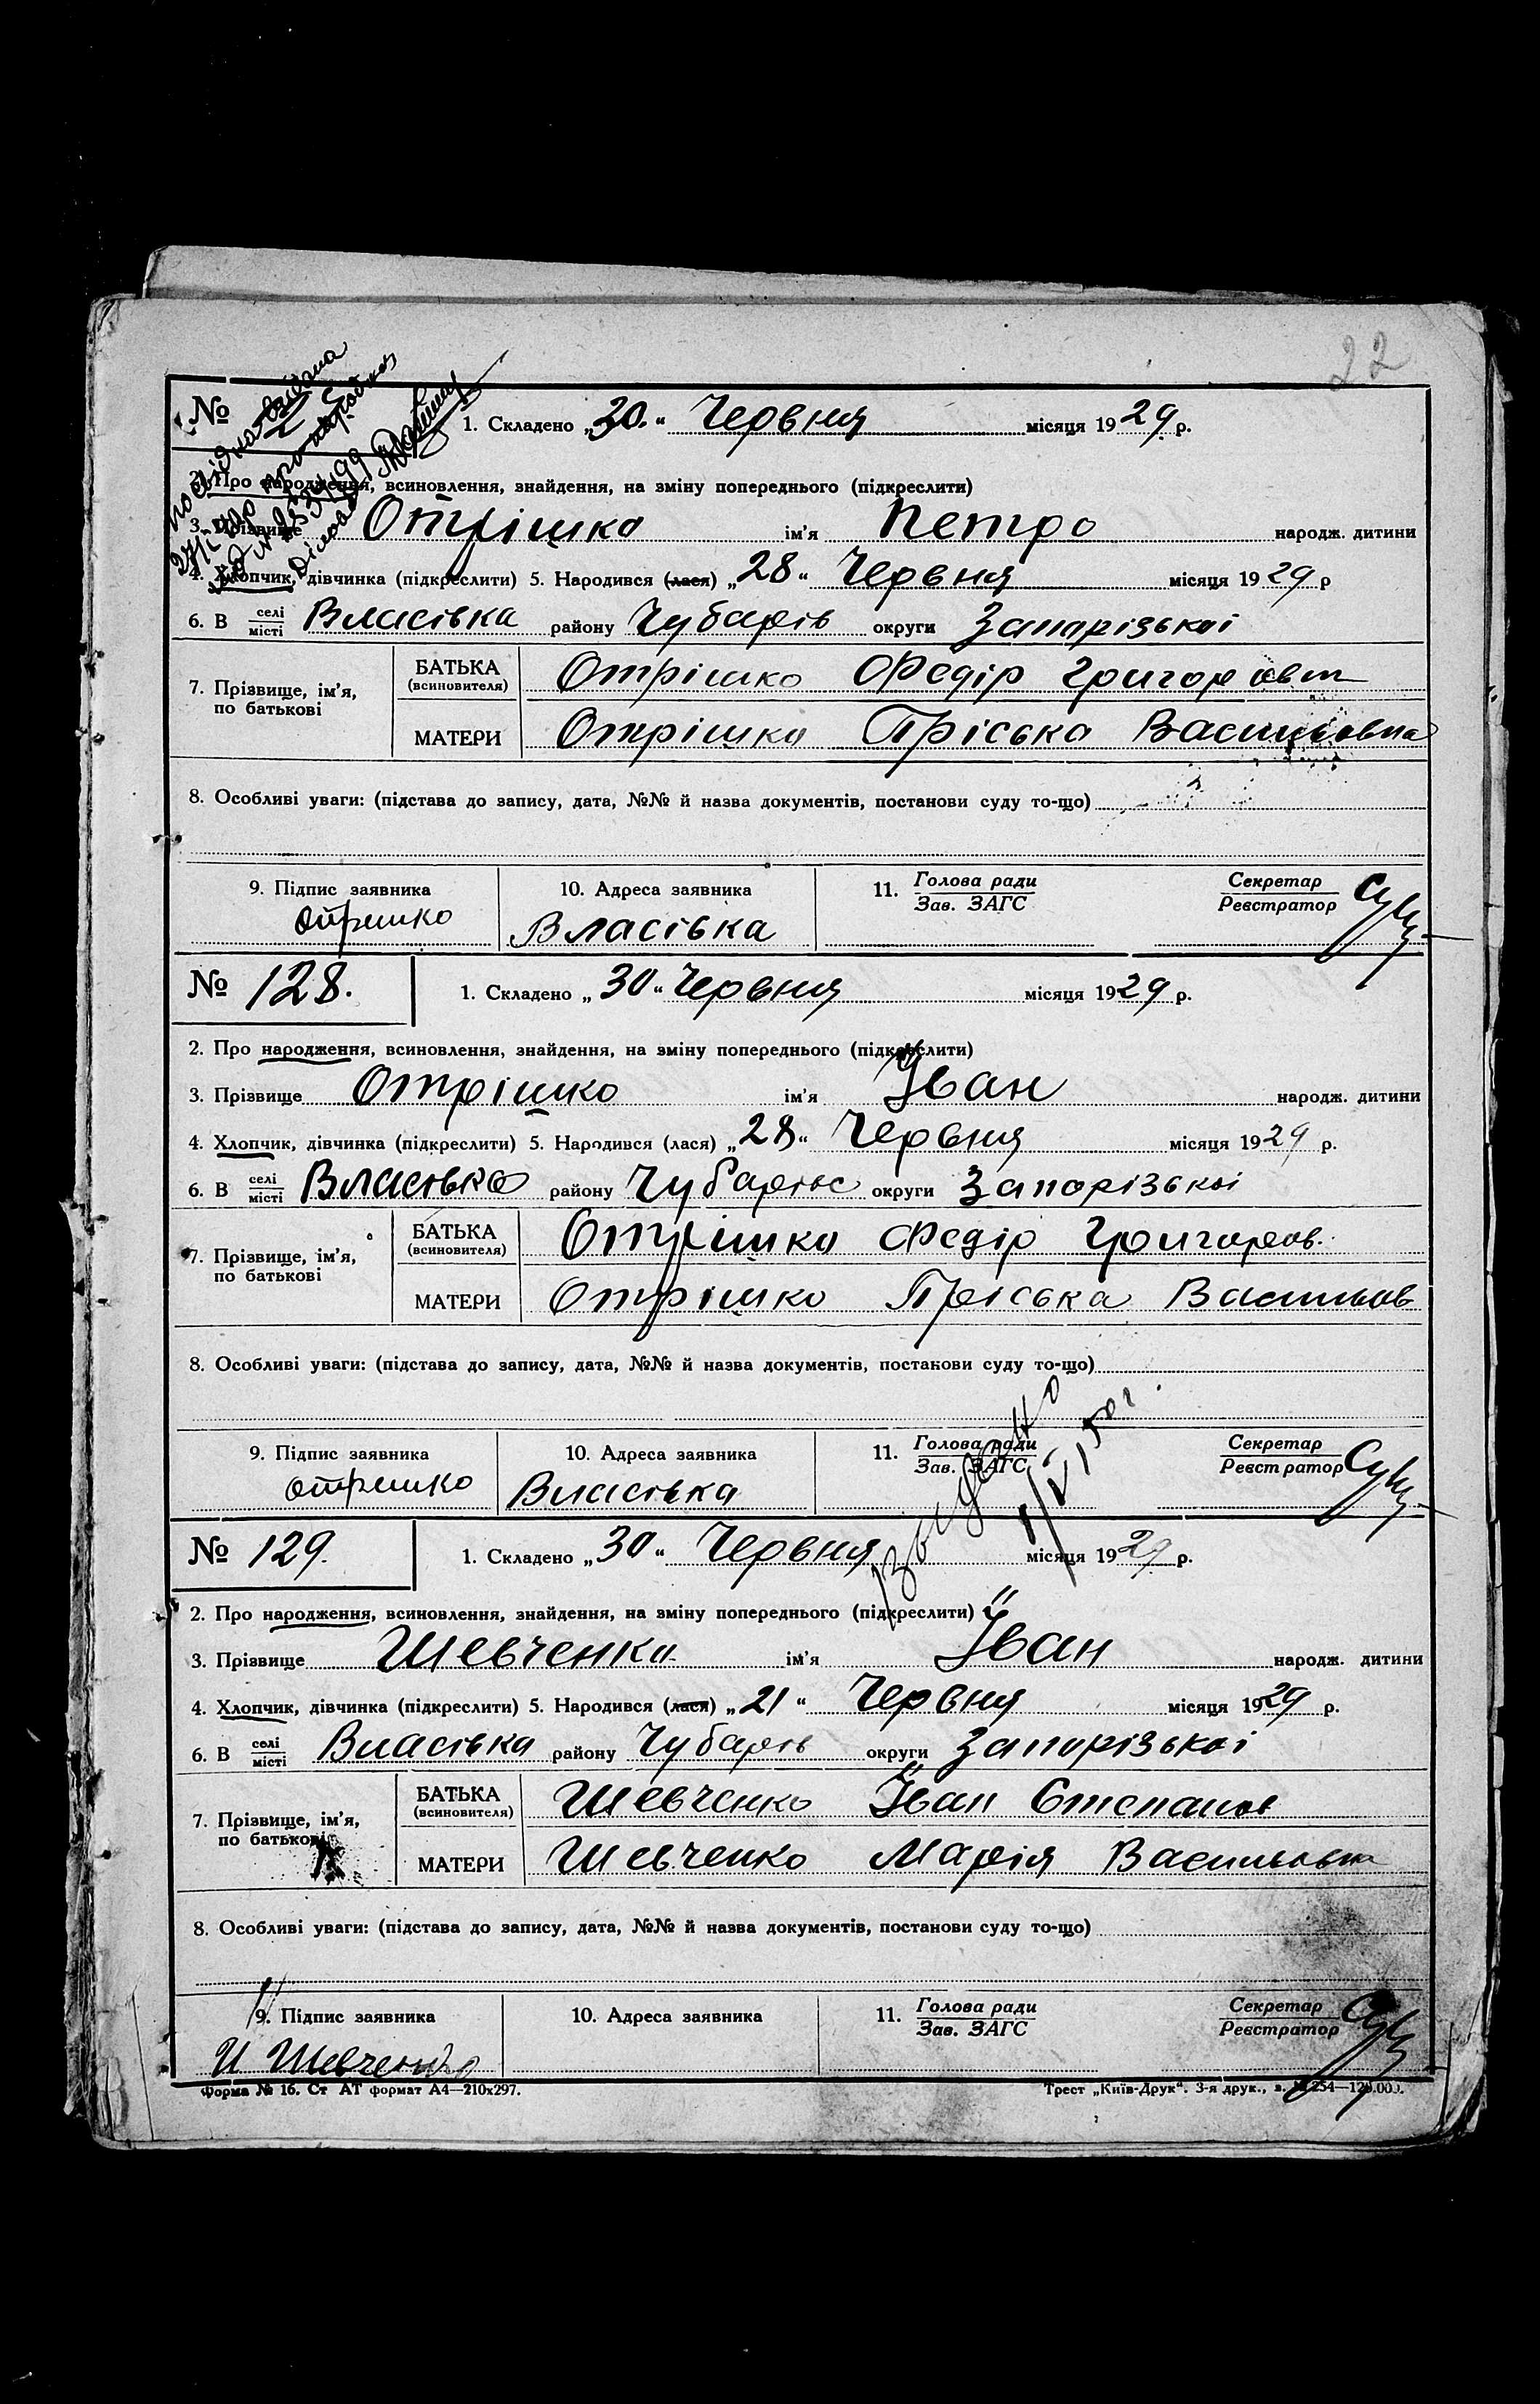 22
№
1. Складено „30.“ Червня місяця 1929 р.
2. Про народження, всиновлення, знайдення, на зміну попереднього (підкреслити)
3. Прізвище Отрішко ім'я Петро народж. дитини
4. Хлопчик, дівчинка (підкреслити) 5. Народився (лася) „28“ Червня місяця 1929 р
6. В селі/місті Власівка району Чубарів округи Запорізькоі
7. Прізвище, ім'я, по батькові
БАТЬКА (всиновителя) Отрішко Федір Григоровит
МАТЕРИ Отрішко Пріська Васильовна
8. Особливі уваги: (підстава до запису, дата, №№ й назва документів, постанови суду то-що)
9. Підпис заявника 10. Адреса заявника 11. Голова ради/Зав. ЗАГС Секретар/Реєстратор
Отришко Власівка
№ 128. 1. Складено „30“ Червня місяця 1929 р.
2. Про народження, всиновлення, знайдення, на зміну попереднього (підкреслити)
3. Прізвище Отрішко ім'я Іван народж. дитини
4. Хлопчик, дівчинка (підкреслити) 5. Народився (лася) „28“ Червня місяця 1929 р.
6. В селі/місті Власівка району округи Запорізькоі
7. Прізвище, ім'я, по батькові
БАТЬКА (всиновителя) Отрішко Федір Григоров.
МАТЕРИ Отрішко Пріська Васильов
8. Особливі уваги: (підстава до запису, дата, №№ й назва документів, постанови суду то-що)
9. Підпис заявника 10. Адреса заявника 11. Голова ради/Зав. ЗАГС Секретар/Реєстратор
Отришко Власівка
№ 129. 1. Складено „30“ Червня місяця 1929 р.
2. Про народження, всиновлення, знайдення, на зміну попереднього (підкреслити)
3. Прізвище Шевченко ім'я Іван народж. дитини
4. Хлопчик, дівчинка (підкреслити) 5. Народився (лася) „21“ Червня місяця 1929 р.
6. В селі/місті Власівка району Чубарів округи Запорізькоі
7. Прізвище, ім'я, по батькові
БАТЬКА (всиновителя) Шевченко Іван Степанов
МАТЕРИ Шевченко Марія Васильовна
8. Особливі уваги: (підстава до запису, дата, №№ й назва документів, постанови суду то-що)
9. Підпис заявника 10. Адреса заявника 11. Голова ради/Зав. ЗАГС Секретар/Реєстратор
И Шевченко
Форма № 16. Ст АТ формат А4—210х297. Трест „Київ-Друк“. 3-я друк., з.